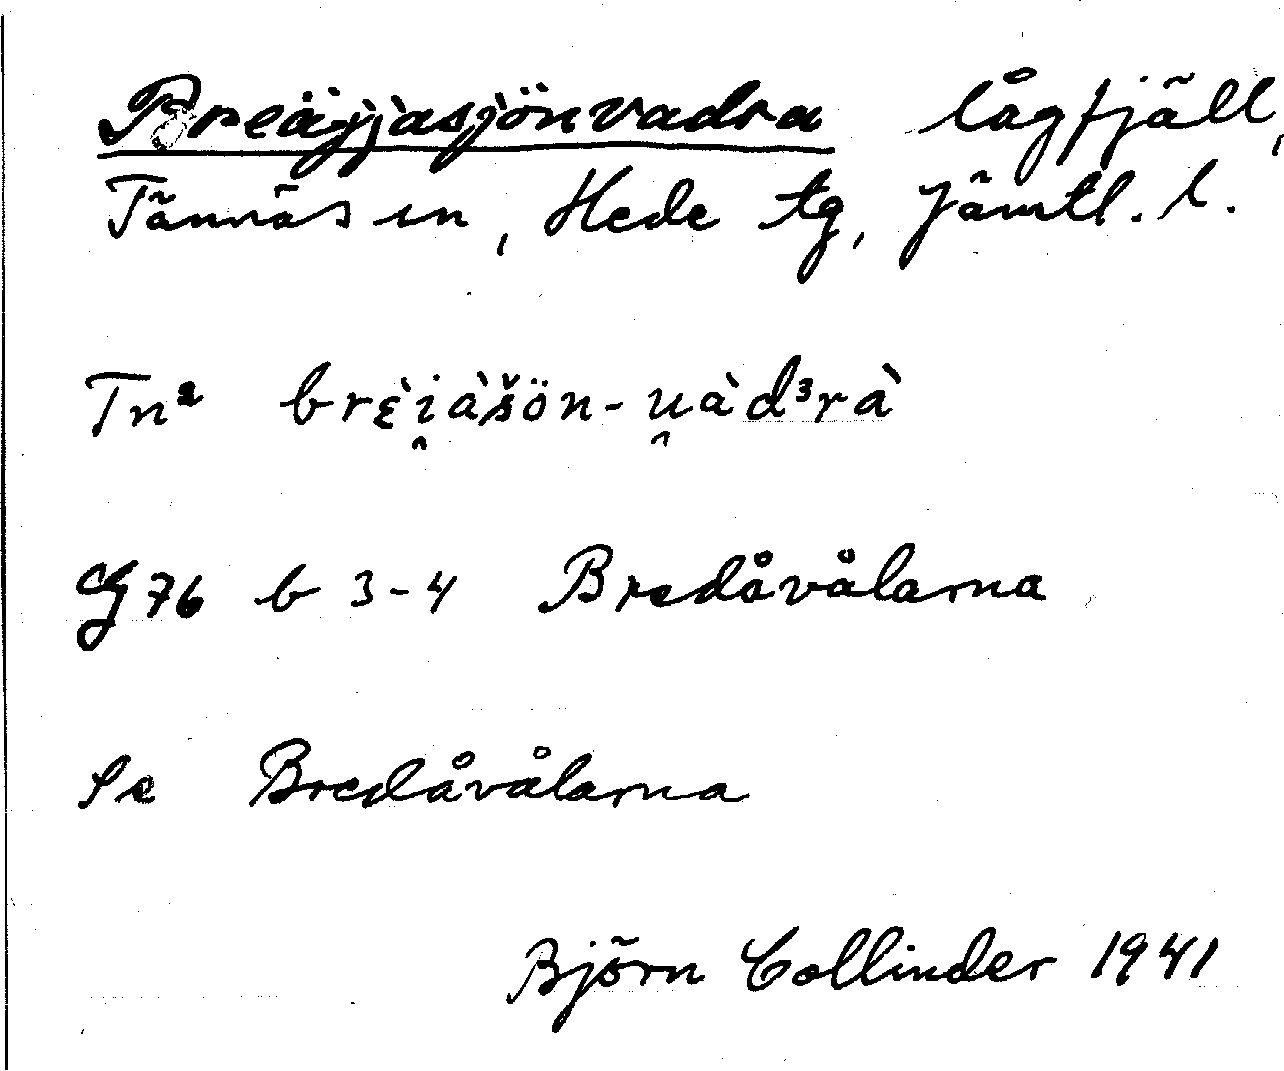 Breäjjasjönvadra lågfjäll,
Tännäs sn, Hede tg, Jämtl. l.
Tn² brɛ̀i̯àšön-u̯àd³rà
G 76 b 3-4 Bredåvålarna
Se Bredåvålarna
Björn Collinder 1941